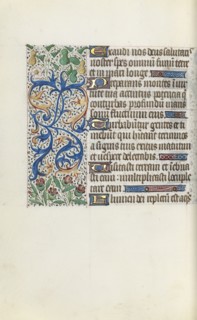 Exaudi nos deus salutaris
noster spes omniū finiū terre
et in mari longe
Preparans montes in vir
tute tua accinctus potencia qui
conturbas profundū maris
sonū fluctuum eius
Turbabūtur gentes et ti
mebūt qui habitant terminos
a signis tuis exitus matutini
et vespere delectabis
Visitasti terram et inebria
sti eam multiplicasti locuple
tare eam
Flumen dei repletū est aq̄s